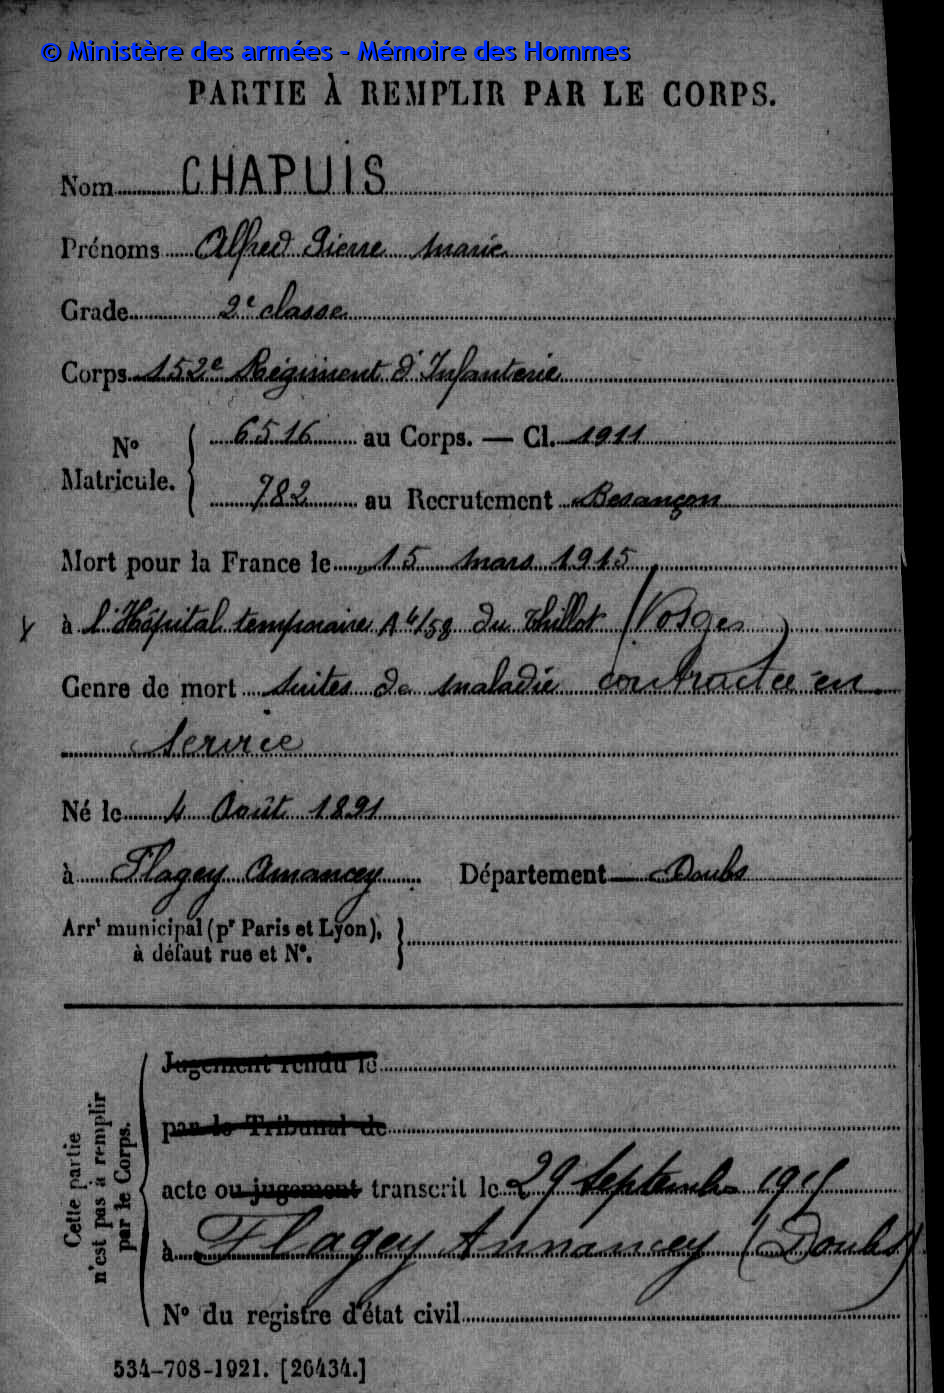 © Ministère des armées - Mémoire des Hommes
PARTIE À REMPLIR PAR LE CORPS.
Nom CHAPUIS
Prénoms Alfred Pierre Marie
Grade 2e classe
Corps 152e Régiment d'Infanterie
N° Matricule. 6516 au Corps. — Cl. 1911
782 au Recrutement Besançon
Mort pour la France le 15 mars 1915
à l'Hôpital temporaire A 4/58 du Thillot (Vosges)
Genre de mort suites de maladie contractée en
service
Né le 4 Août 1891
à Flagey Amancey Département Doubs
Arrt municipal (pr Paris et Lyon),
à défaut rue et N°.
Cette partie n'est pas à remplir par le Corps.
Jugement rendu le
par le Tribunal de
acte ou jugement transcrit le 29 Septembre 1915
à Flagey Annancey (Doubs)
N° du registre d'état civil
534-708-1921. [26434.]